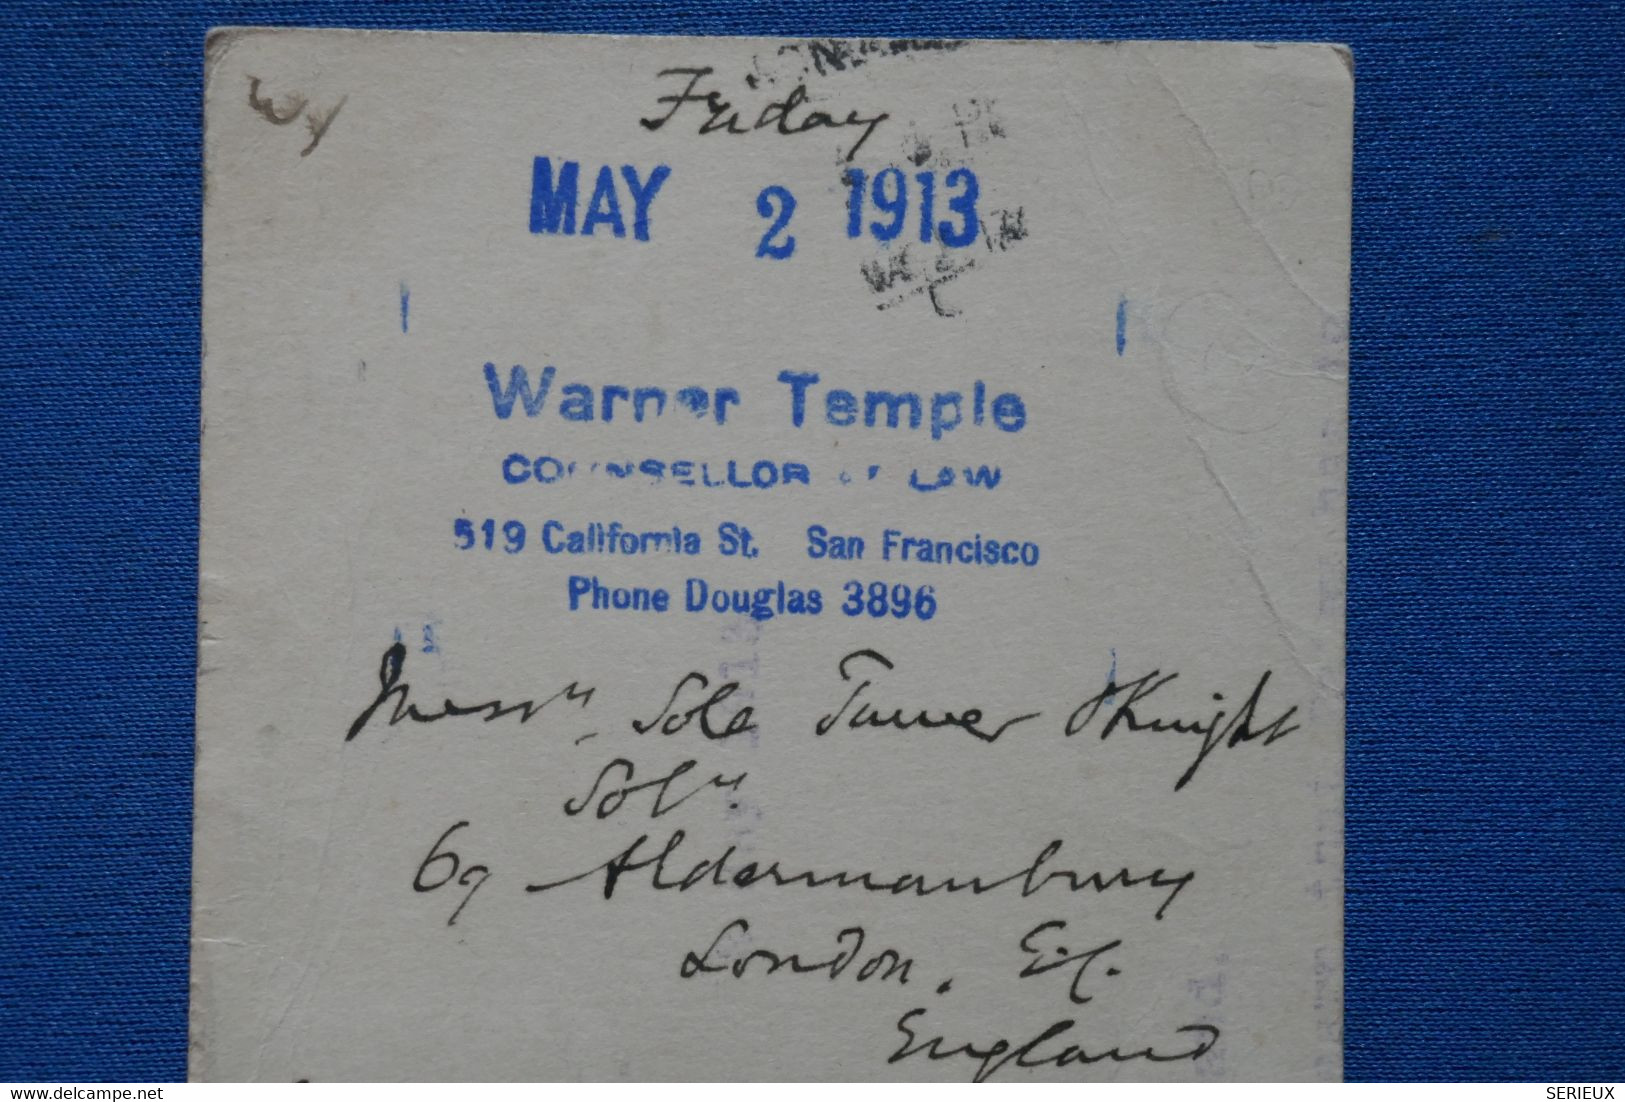 Friday
MAY 2 1913
Warner Temple
COUNSELLOR AT LAW
519 California St. San Francisco
Phone Douglas 3896
Messrs Sole Turner & Knight
Solrs
69 Aldermanbury
London. E.C.
England
SERIEUX
delcampe.net